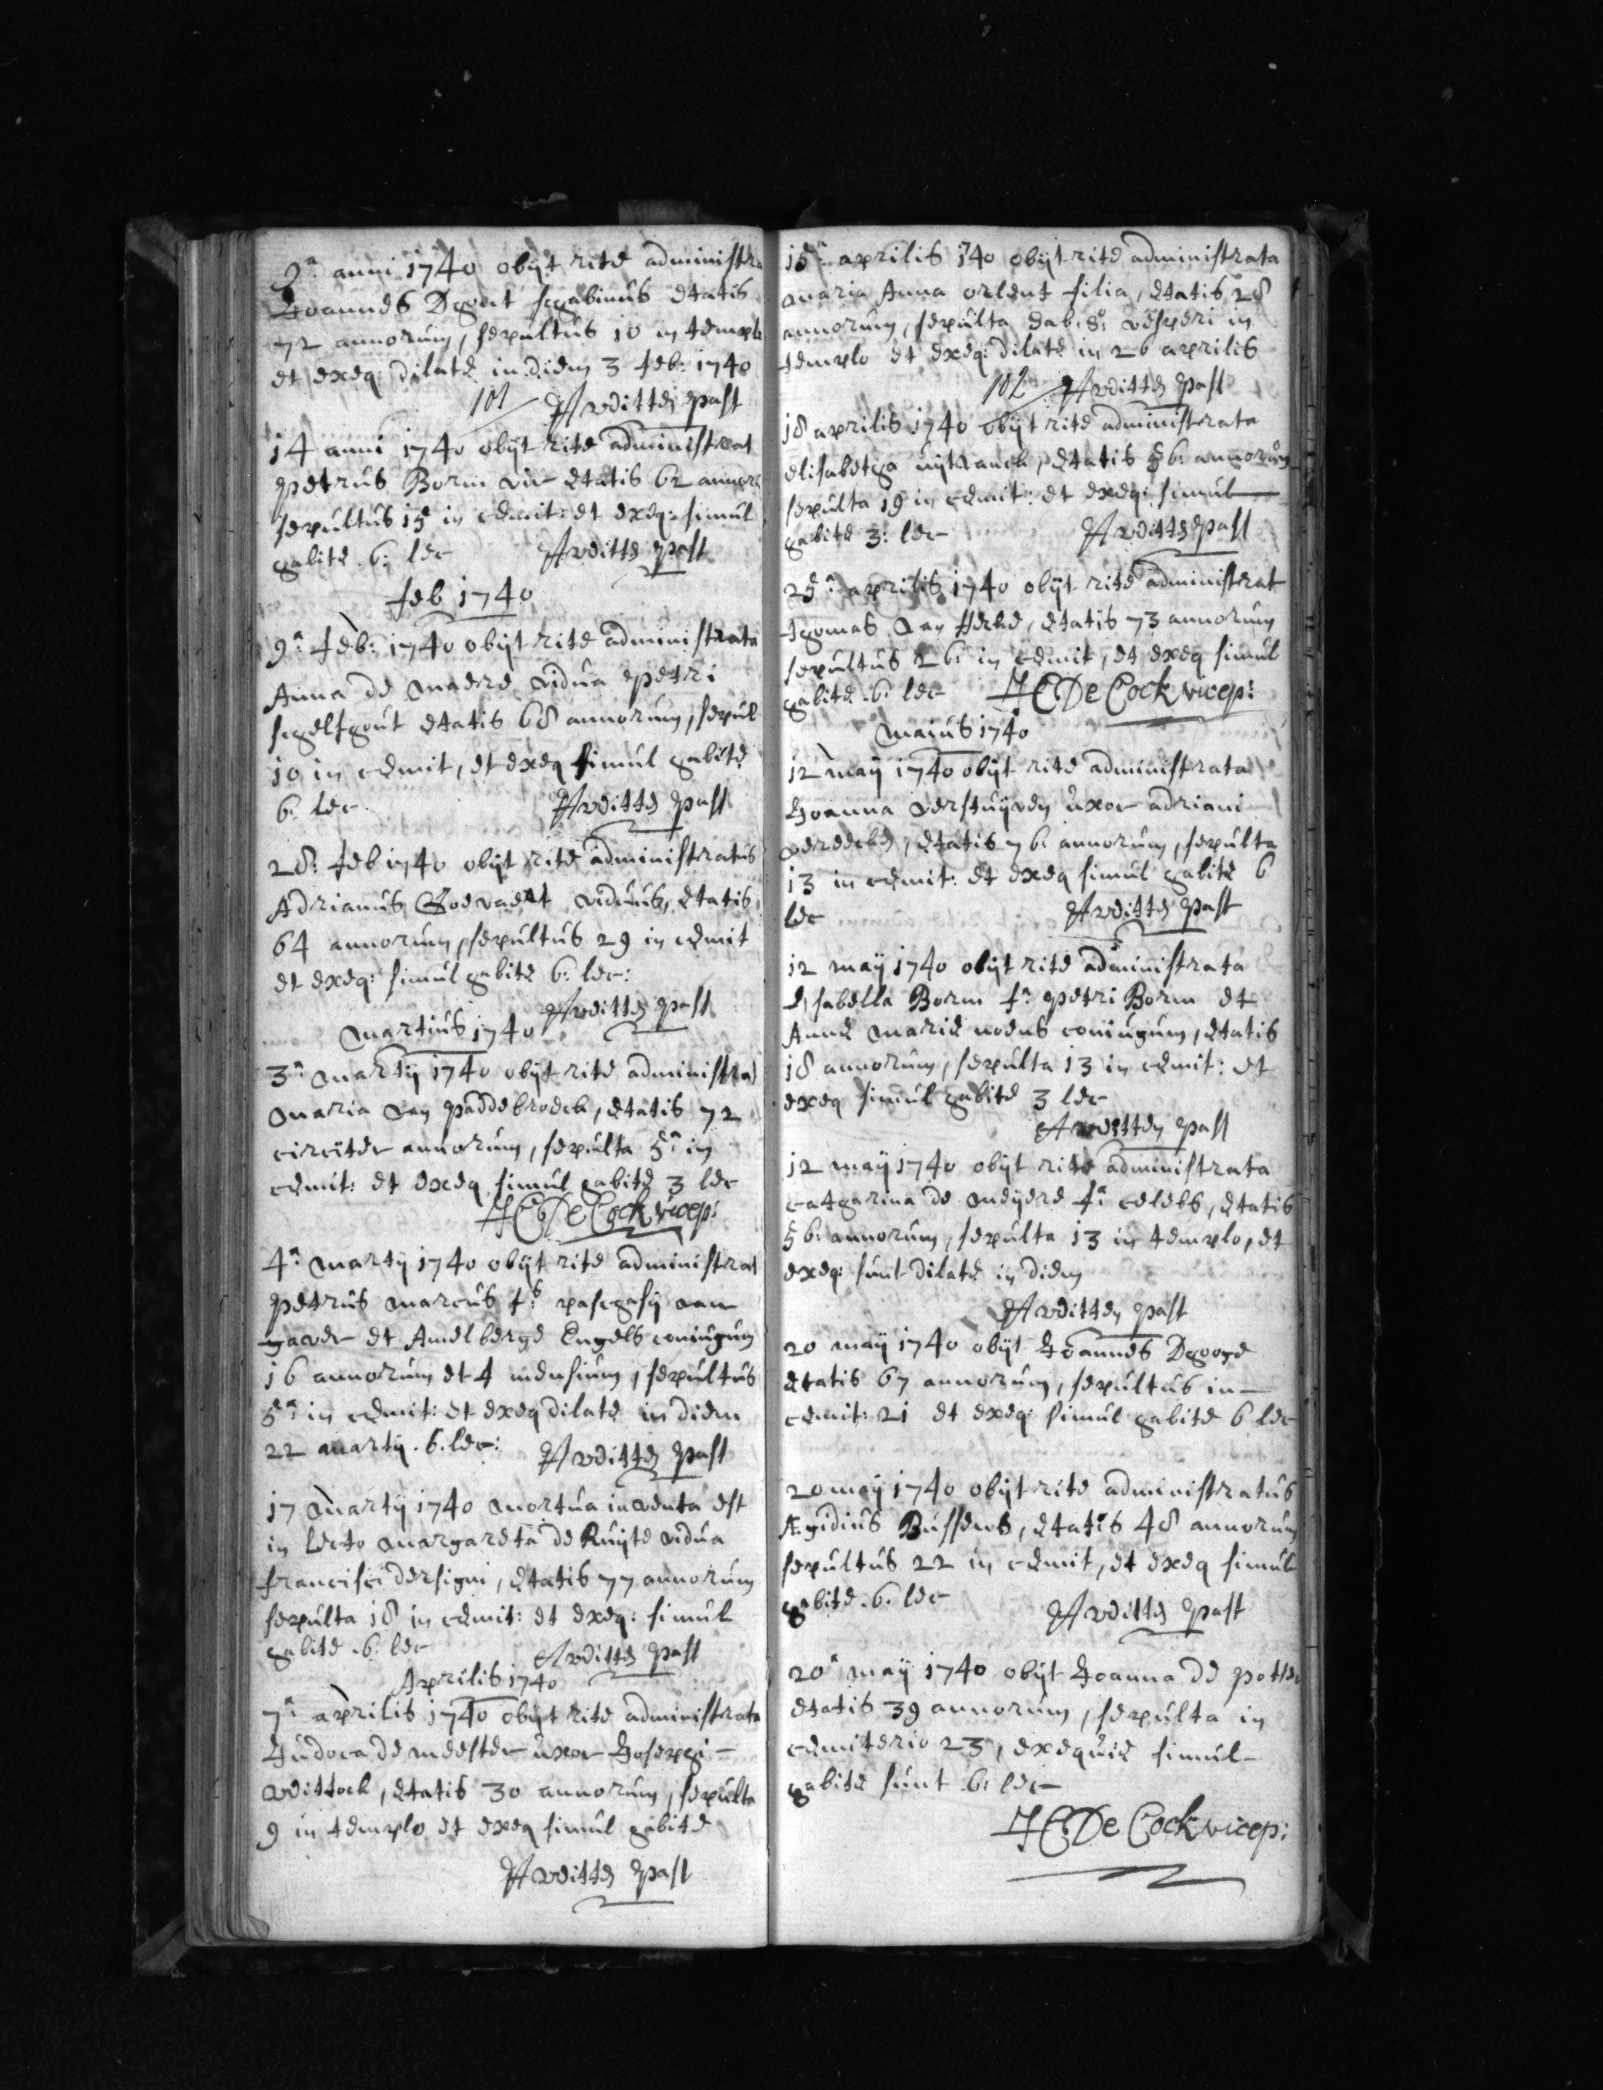 9a anni 1740 obijt rite administra
Joannes Dhont schabinus etatis
72 annorum, sepultus 10 in templo
et exeq: dilate in diem 3 feb: 1740
101 J A veitten past
14 anni 1740 obijt rite administrat
petrus Borm vir etatis 62 annoru
sepultus 15 in cemit: et exeq: simul
habite .6: lec J A veitten past
feb 1740
9a: feb: 1740 obijt rite administrata
Anna de maere vidua petri
schelfhout etatis 68 annorum, sepul
10 in cemit, et exeq simul habite
6: lec J A veitten past
28: feb 1740 obijt rite administratus
Adrianus Govaert viduus, etatis
64 annorum, sepultus 29 in cemit
et exeq: simul habite 6: lec:
J A veitten past
Martius 1740
3a: martij 1740 obijt rite administrat
maria van paddebroeck, etatis 72
circiter annorum, sepulta 5a in
cemit: et exeq simul habite 3 lec
J C De Cock vicep:
4a: martij 1740 obijt rite administrat
petrus marcus fs: paschasij van
haver et Amelberge Engels coniugum
16 annorum et 4 mensium, sepultus
5a: in cemit: et exeq dilate in diem
22 martij .6. lec: J A veitten past
17 Martij 1740 mortua inventa est
in lecto margareta de Ruijte vidua
francisci dersigni, etatis 77 annorum
sepulta 18 in cemit: et exeq: simul
habite .6: lec J A veitten past
Aprilis 1740
7a aprilis 1740 obijt rite administrata
Judoca de meester uxor Josephi
wittock, etatis 30 annorum, sepulta
9 in templo et exeq simul habite
J A veitten past
15a: aprilis 1740 obijt rite administrata
maria Anna orlent filia, etatis 28
annorum, sepulta vesperi in
templo et exeq: dilate in 26 aprilis
102 J A veitten past
18 aprilis 1740 obijt rite administrata
elisabetha uijtvanck, etatis 56: annorum
sepulta 19 in cemit: et exeq: simul
habite 3: lec J A veitten past
25a: aprilis 1740 obijt rite administrat
thomas van Herre, etatis 73 annorum
sepultus 26: in cemit, et exeq simul
habite .6: lec J C De Cock vicep:
maius 1740
12 maij 1740 obijt rite administrata
Joanna verstuijven uxor adriani
vereecke, etatis 76: annorum, sepulta
13 in cemit: et exeq simul habite 6
lec J A veitten past
12 maij 1740 obijt rite administrata
Isabella Borm fa: petri Borm et
Anne marie noens coniugum, etatis
18 annorum, sepulta 13 in cemit: et
exeq simul habite 3 lec
J A veitten past
12 maij 1740 obijt rite administrata
catharina de meijere fa: celebs, etatis
56: annorum, sepulta 13 in templo, et
exeq: sunt dilate in diem
J A veitten past
20 maij 1740 obijt Joannes Dhooge
etatis 67 annorum, sepultus in
cemit: 21 et exeq: simul habite 6 lec
20 maij 1740 obijt rite administratus
Ægidius Bussens, etatis 48 annorum
sepultus 22 in cemit, et exeq simul
habite .6: lec J A veitten past
20a maij 1740 obijt Joanna de potter
etatis 39 annorum, sepulta in
cemiterio 23, exequie simul
habite sunt .6: lec
J C De Cock vicep: